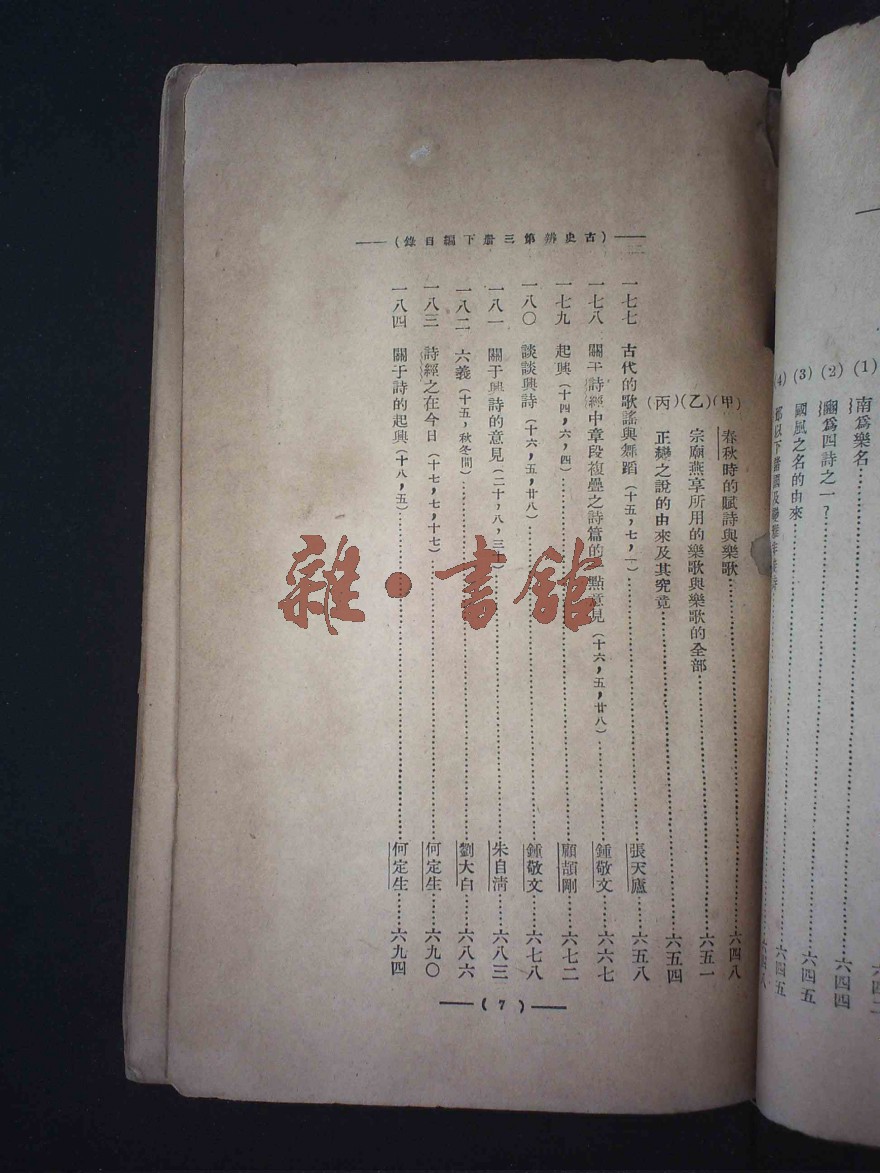 (1) 南爲樂名
六四二
(2) 豳爲四詩之一?
六四四
(3) 國風之名的由來
六四五
(4)
六四五
(甲) 春秋時的賦詩與樂歌……六四八
(乙) 宗廟燕享所用的樂歌與樂歌的全部……六五一
(丙) 正變之說的由來及其究竟……六五四
一七七 古代的歌謠與舞蹈(十五,七,一)……張天廬……六五八
一七八 關于詩經中章段複疊之詩篇的一點意見(十六,五,廿八)……鍾敬文……六六七
一七九 起興(十四,六,四)……顧頡剛……六七二
一八〇 談談興詩(十六,五,廿八)……鍾敬文……六七八
一八一 關于興詩的意見(二十,八,三十)……朱自淸……六八三
一八二 六義(十五,秋冬間)……劉大白……六八六
一八三 詩經之在今日(十七,七,十七)……何定生……六九〇
一八四 關于詩的起興(十八,五)……何定生……六九四
二
——(古史辨第三册下編目錄)——
——(7)——
雜·書館